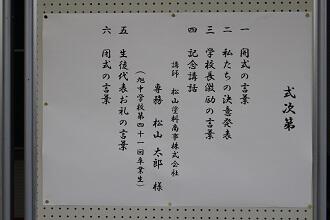 式次第
一 開式の言葉
二 私たちの決意発表
三 学校長激励の言葉
四 記念講話
講師 松山塗料商事株式会社
専務 松山 太郎 様
(旭中学校第四十一回卒業生)
五 生徒代表お礼の言葉
六 閉式の言葉